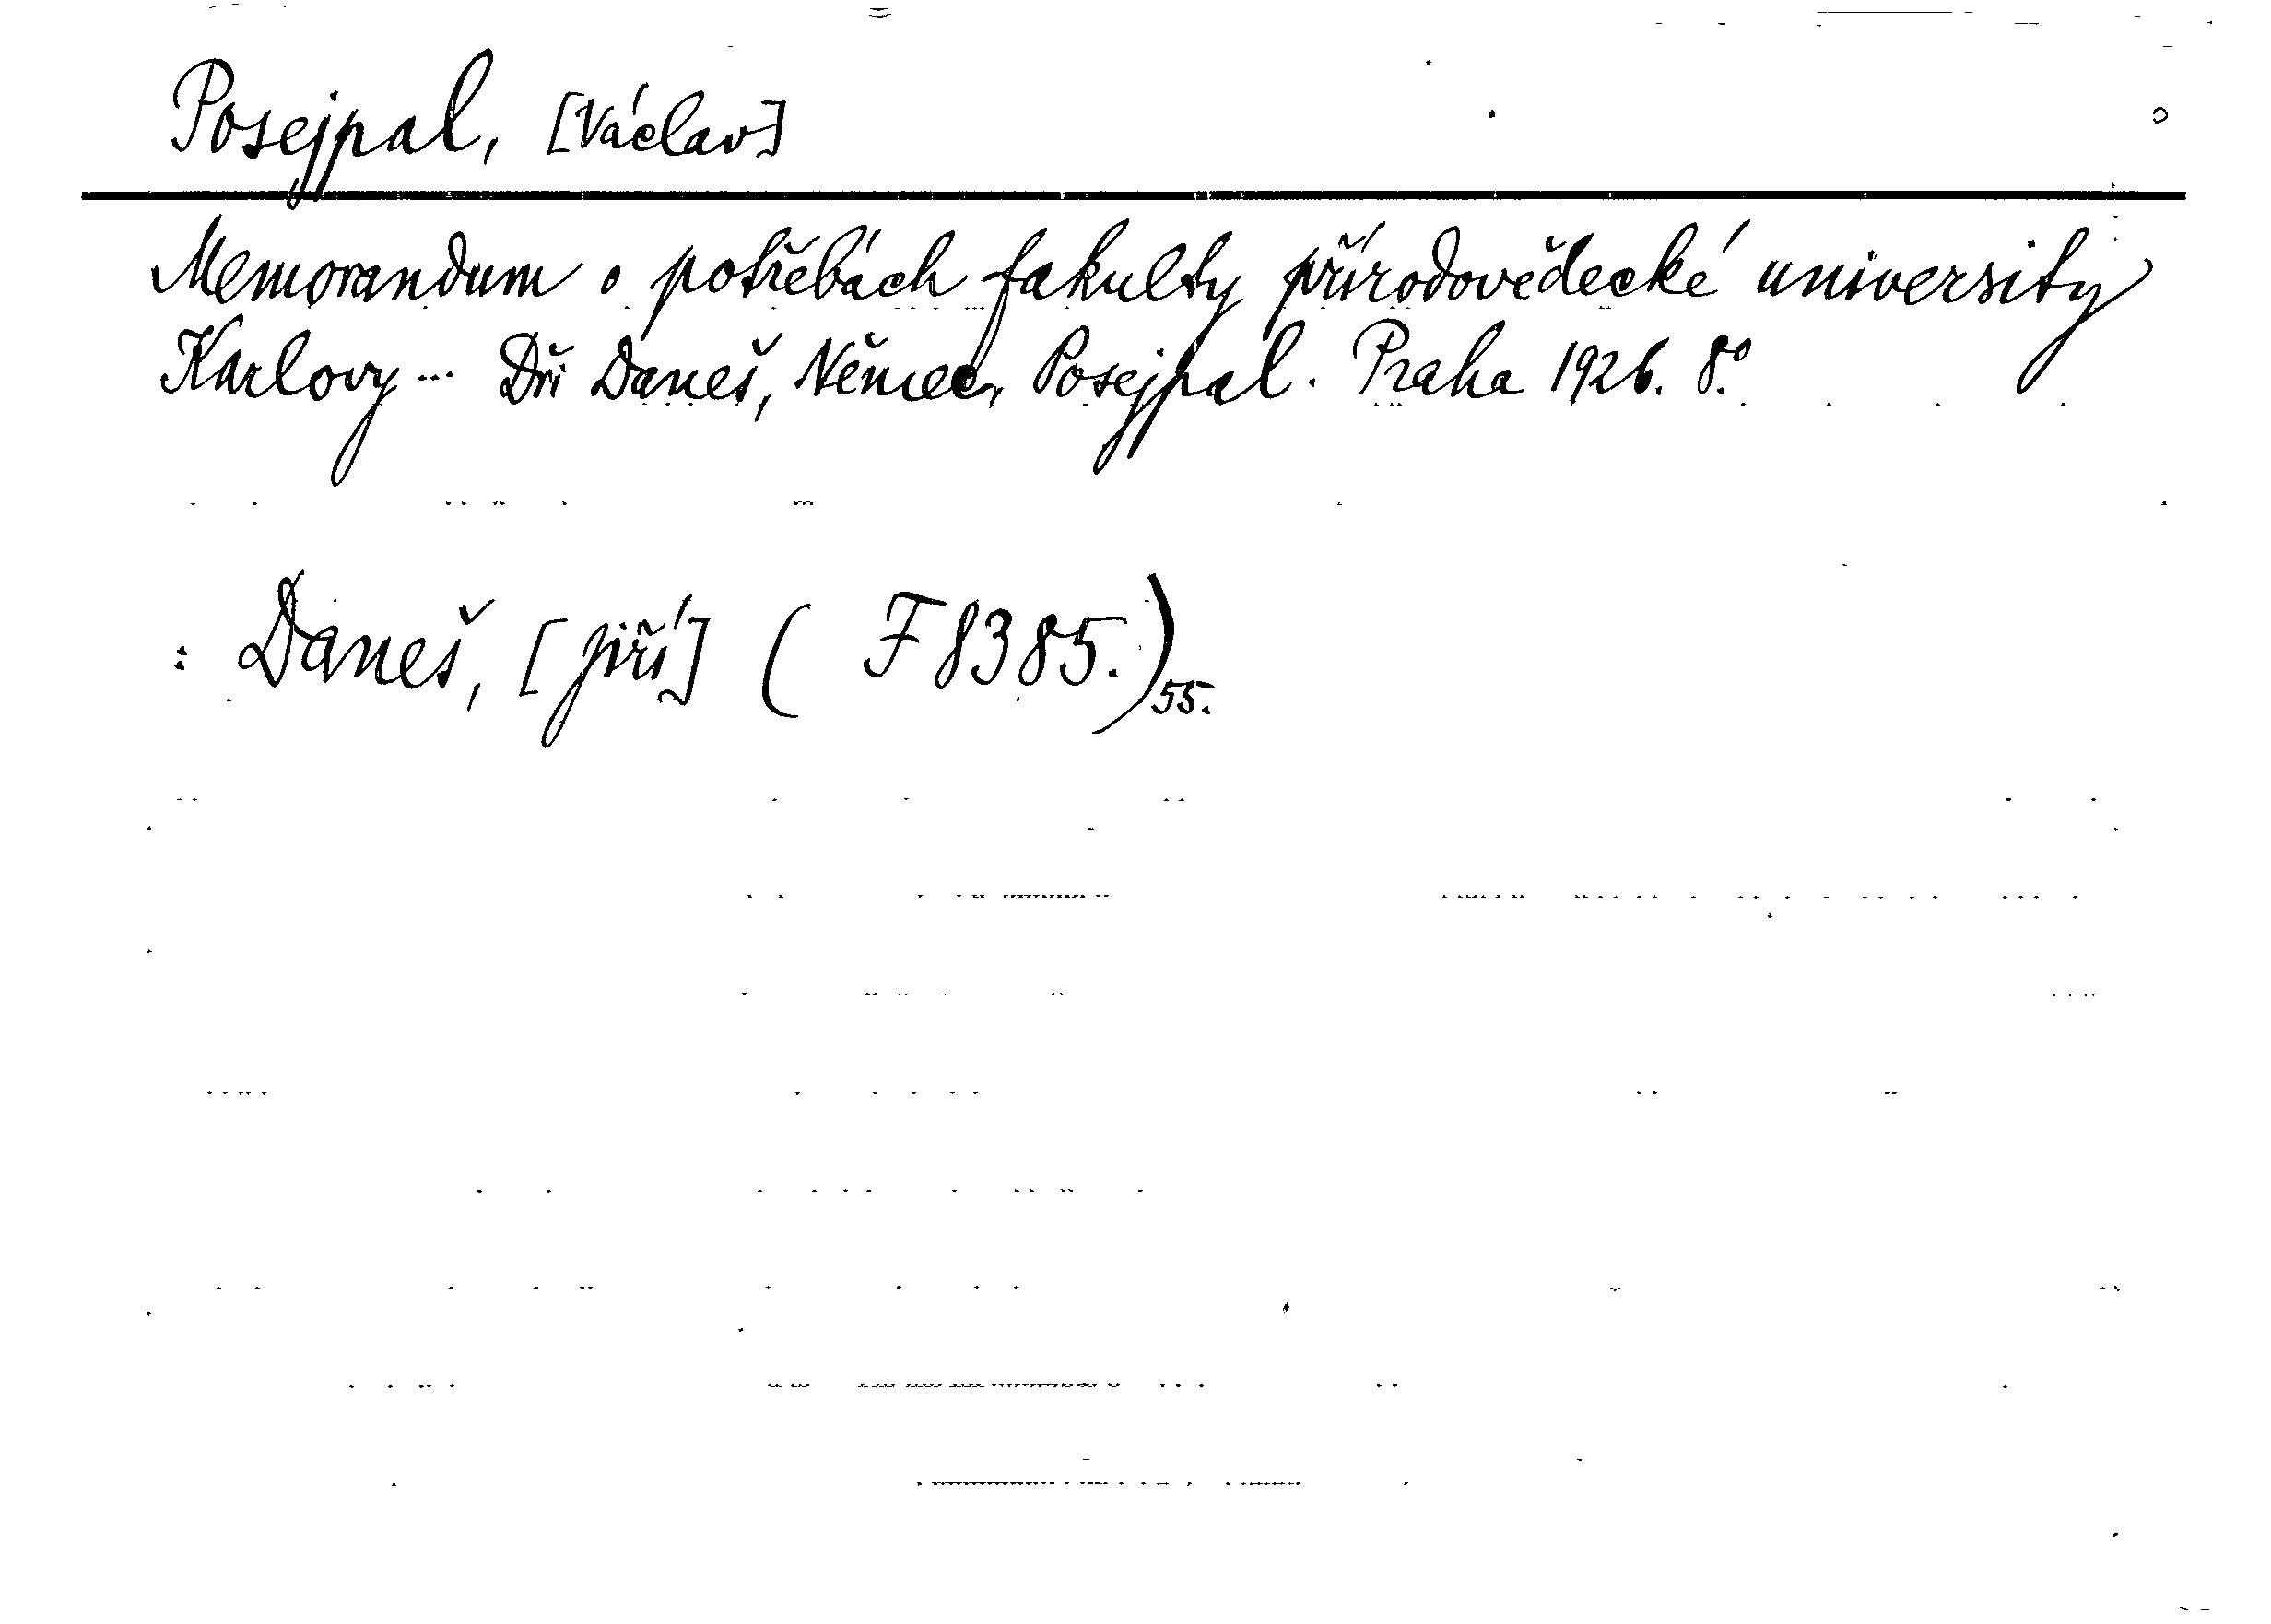 Posejpal, [Václav]
Memorandum o potřebách fakulty přírodovědecké university
Karlovy ... Dři Daneš, Němec, Posejpal. Praha 1926. 8.°
: Daneš, [Jiří] ( F 8385.)55.